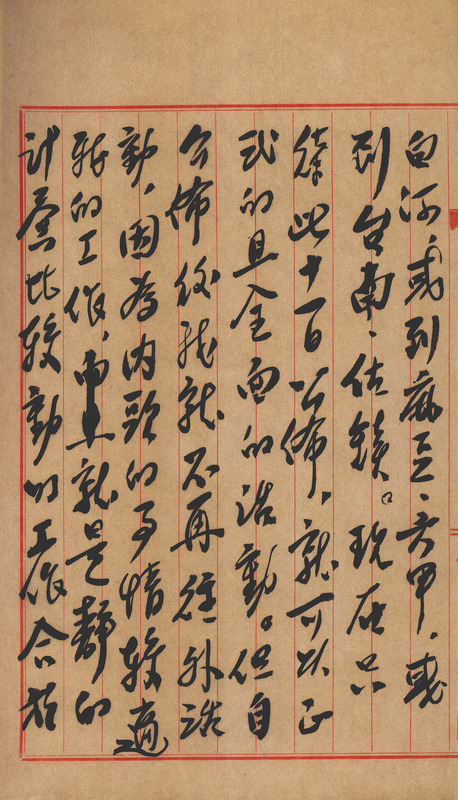 白河,或到麻豆、六甲,或
到台南、佐鎮。現在只
此十一日公佈,就可以正
式的且全面的活動。但自
公佈後我就不再往外活
動,因為內頭的事情較適
我的工作,而且就是靜的
計比較動的工作合於